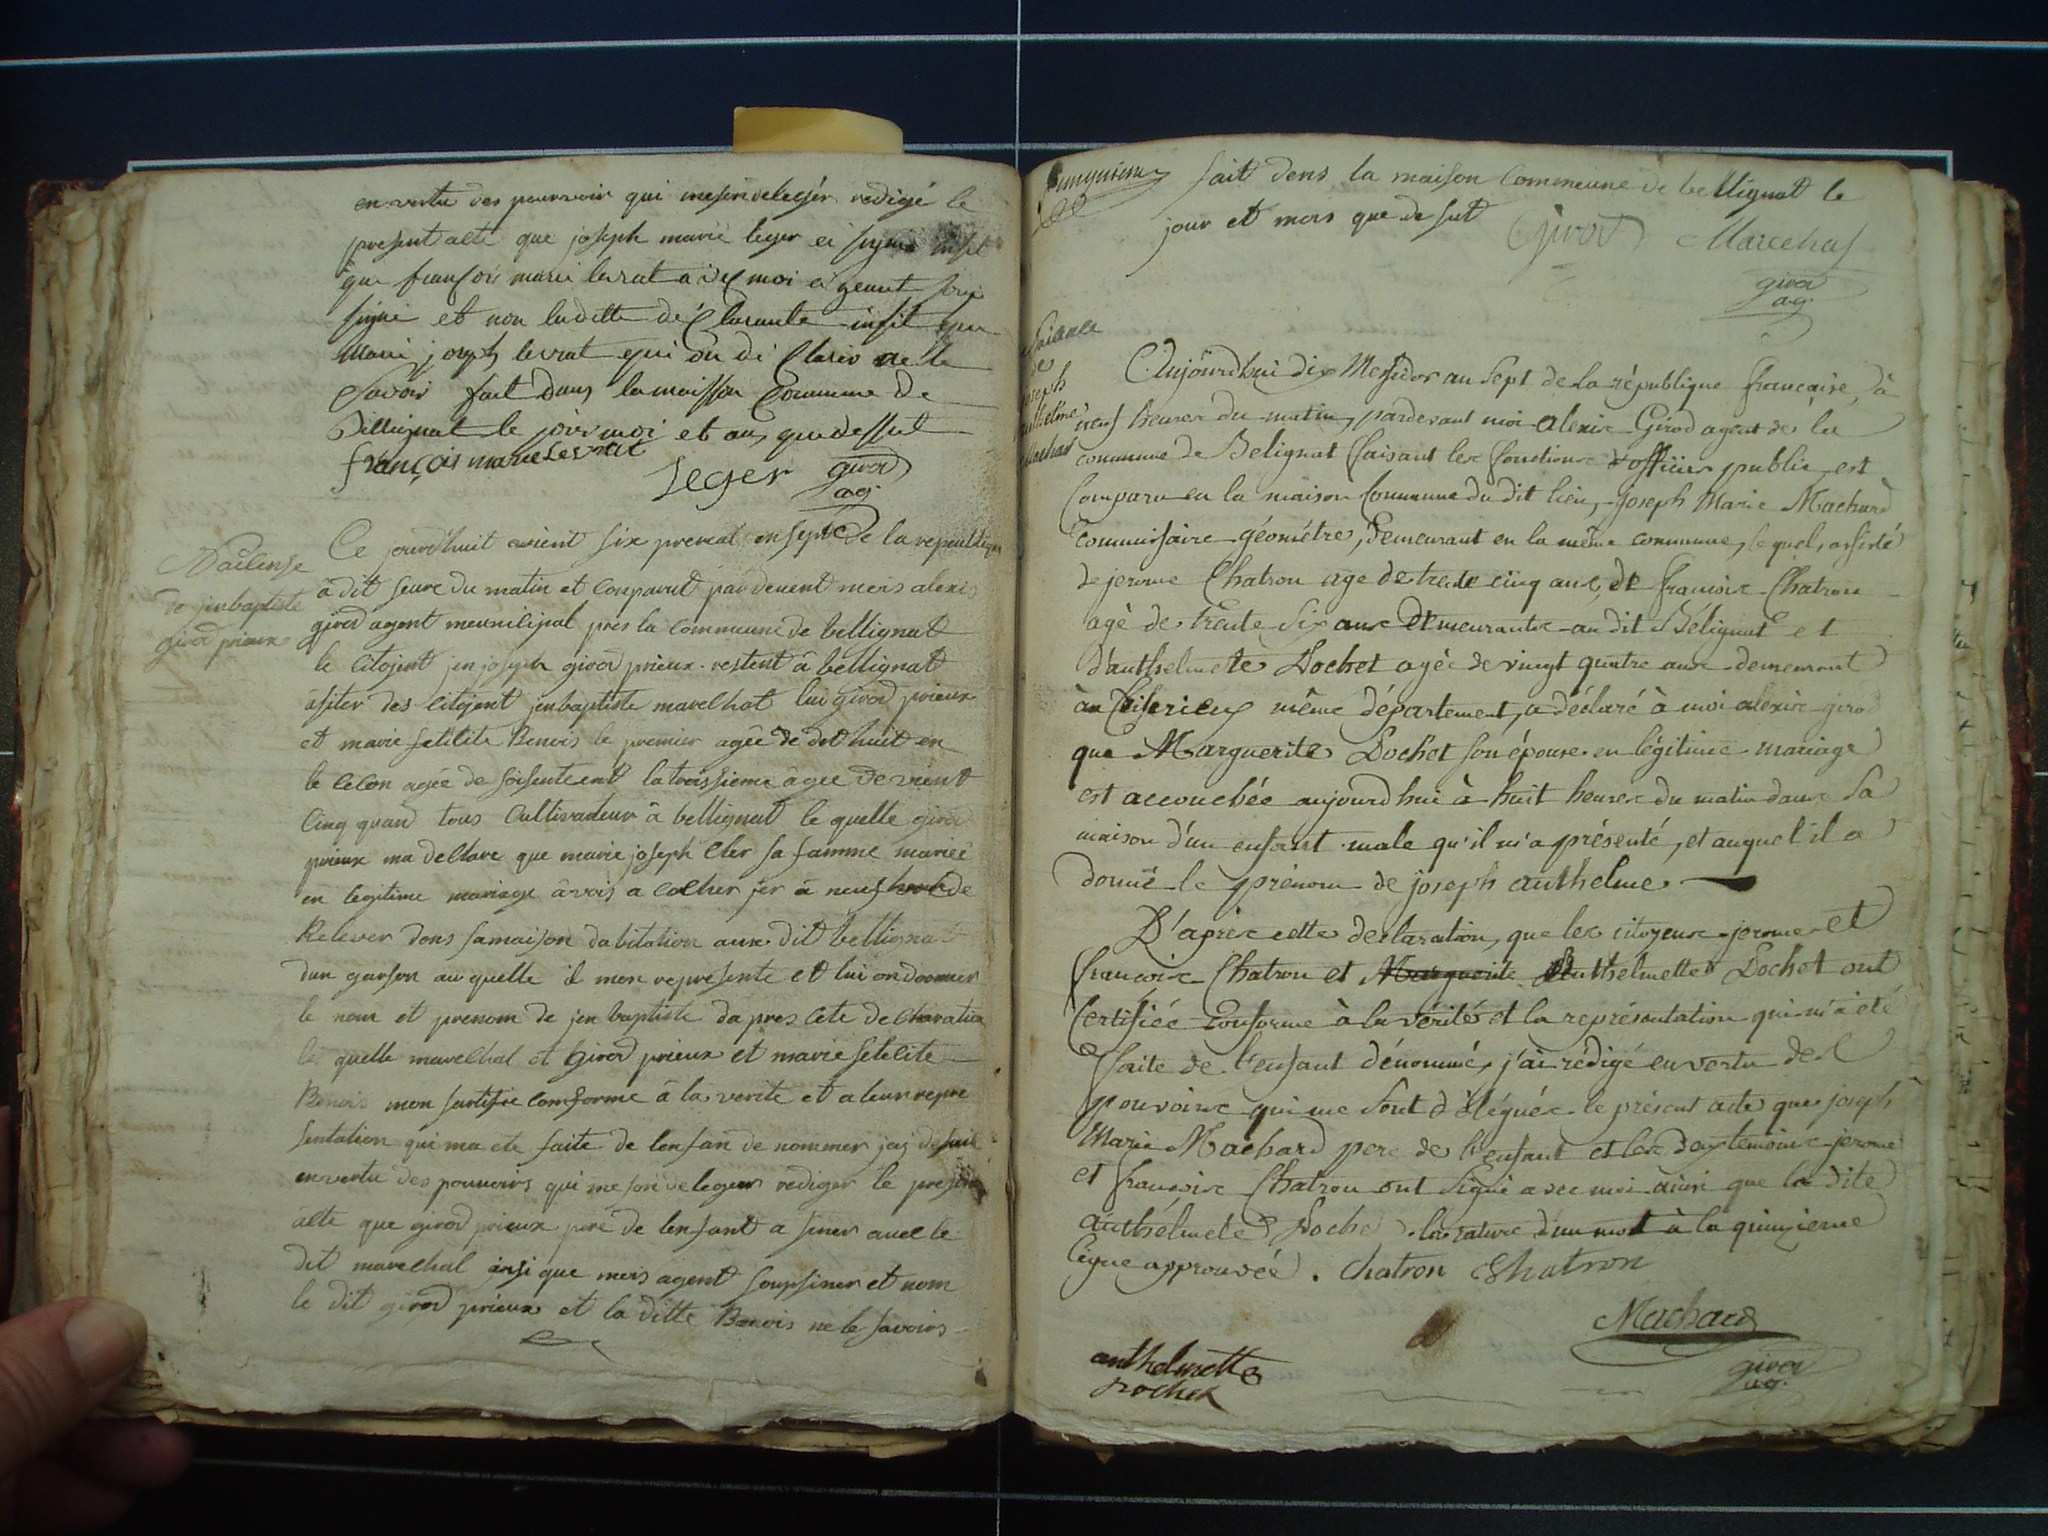 en vertu des pourvoir qui me son delegér redigé le
present alte que joseph marie leger ei signer insi
que françois marie levrat avec moi agent sou
signé et non laditte déclarante insit que
Marie joseph levrat qui on déclarer ne le
savoir fait dans la maisson Commune de
Billignat le jour moi et an que dessut
françois marie Levrat
Leger girod
ag.
Naisense
de jenbaptiste
girod prieux
Ce jourdhuit vient six prereal en septe de la republique
à dit heure du matin et comparut par devent mois alexis
girod agent meunicipal près la commune de bellignat
le Citojent jen joseph girod prieux restent à bellignat
asiter des Citojent jenbaptiste marelhal lui girod prieux
et marie felicite Benois le premier agée de dethuit en
le celon agée de soisenteent la troissieme agee de vient
Cinq quand tous Cultivadeur à bellignat le quelle girod
prieux ma dellare que marie joseph Cler sa famme mariee
en legitime mariage avois a colher jer à neuf de
Relever dons samaison dabitation aux dit bellignat
dun garson au quelle il mon represente et lui on donner
le nom et prenom de jen baptiste da pres cete declaration
le quelle marelhal et girod prieux et marie felicite
Benois mon sertifie comforme à la verite et a leur repre
sentation qui ma ete faite de lenfan de nommer jaj desuit
en vertu des pouvoirs qui me son deleguer rediger le present
alte que girod prieux pere de lenfant a siner avec le
dit marelhal ainsi que mois agent soupsiner et nom
le dit girod prieux et la ditte Benois ne le savoirs
fait dens la maison Commeune de bellignat le
jour et mois que de sut Girod Marechal
girod
ag.
Naissance
de
joseph
anthelme
Machard
Aujourd'hui dix Messidor an Sept de la république française, à
neuf heures du matin, pardevant moi alexis Girod agent de la
commune de Belignat faisant les fonctions d'officier public, est
Comparu en la maison Commune du dit lieu, joseph Marie Machard
commissaire géométre, demeurant en la même commune, lequel, assisté
de jerome Chatron age de trente cinq ans, de françois Chatron
agé de trente Six ans demeurants au dit Bélignat et
d'anthelmette Rochet agée de vingt quatre ans demeurant
à même département, a déclaré à moi alexis girod
que Marguerite Rochet son épouse en légitime mariage
est accouchée aujourd'hui à huit heures du matin dans sa
maison d'un enfant male qu'il m'a présenté, et auquel il a
donné le prénom de joseph anthelme.
D'après cette declaration, que les citoyens jerome et
françois Chatron et Marguerite Anthelmette Rochet ont
Certifiée conforme à la vérité et la représentation qui m'a été
faite de l'enfant dénommé, j'ai rédigé en vertu des
pouvoirs qui me sont délégués le présent acte que joseph
Marie Machard pere de l'enfant et les deux temoins jerome
et françois Chatron ont signé avec moi ainsi que la dite
anthélmete Rochet. la rature d'un mot à la quinzieme
ligne approuvée. Chatron Chatron
Machard
anthelmette
Rochet
girod
ag.